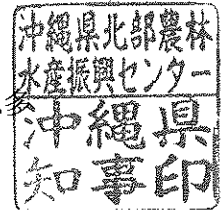 沖縄県北部農林
水産振興センター
沖縄県
知事印